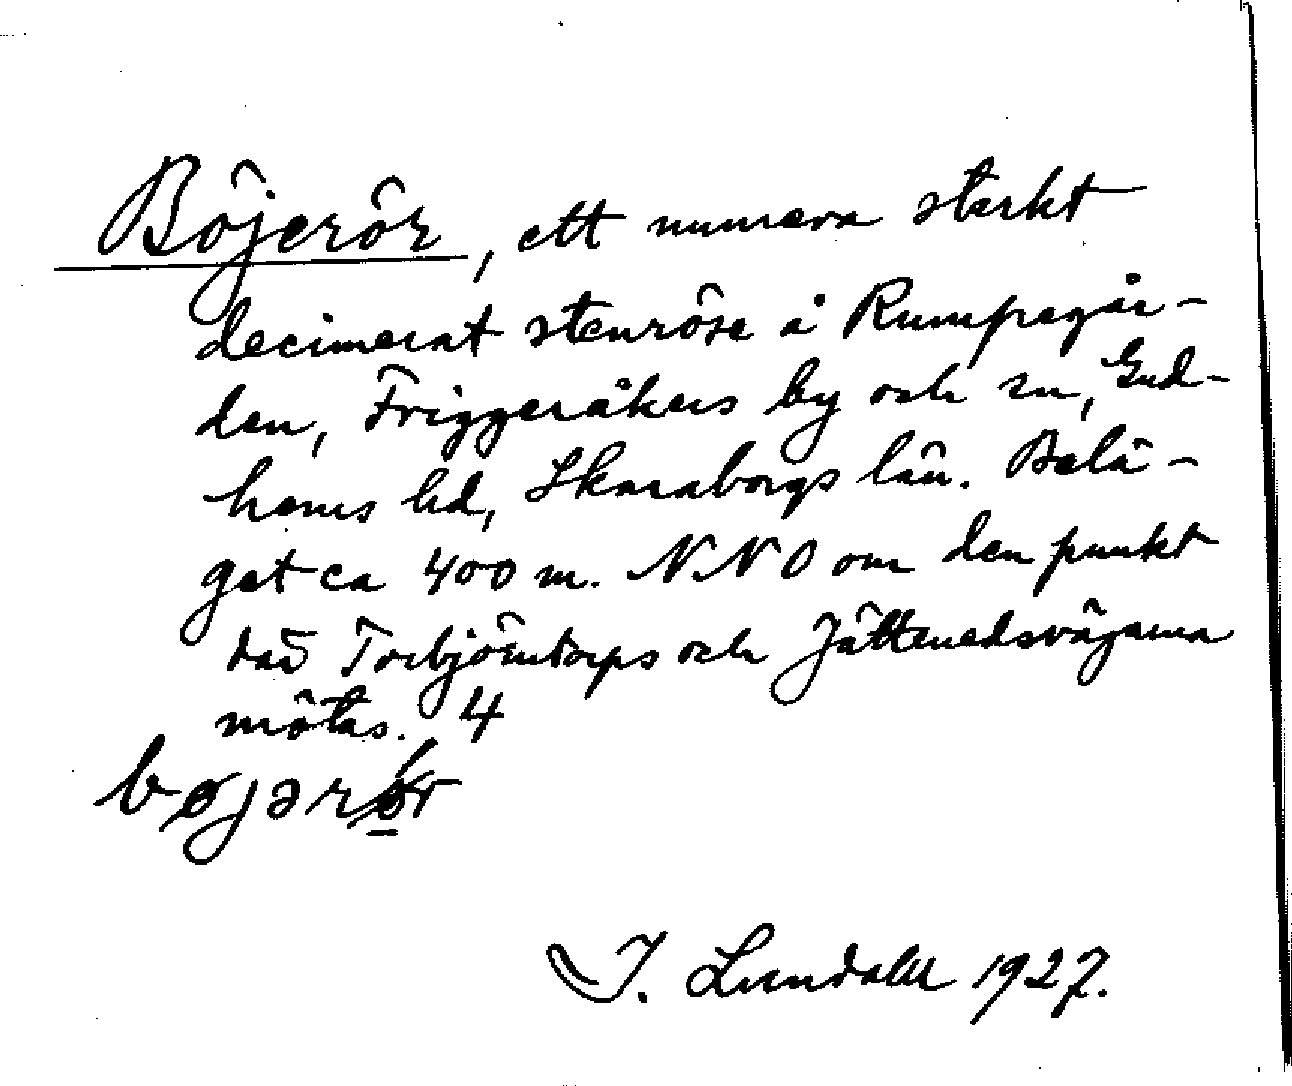 Böjerör, ett numera starkt
decimerat stenröse å Rumpegår-
den, Friggeråkers by och sn, Gud-
hems hd, Skaraborgs län. Belä-
get ca 400 m. NNO om den punkt
där Torbjörntorps och Jättenedsvägarna
mötas. 4
bøjərør
I. Lundahl 1927.